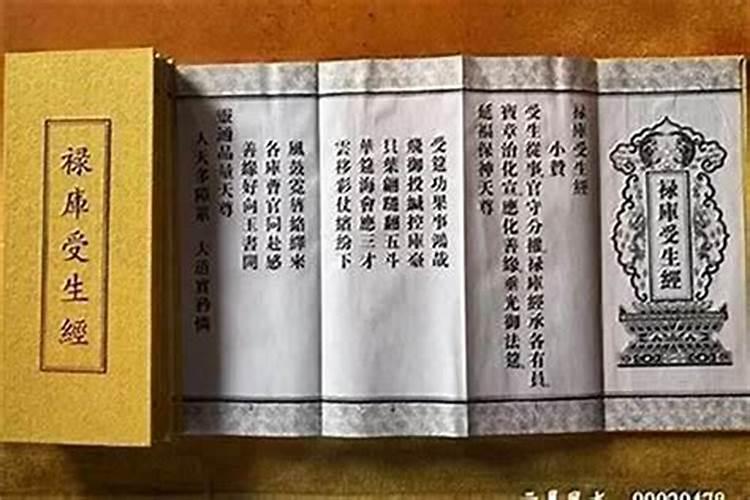 祿庫受生經
祿庫受生經
祿庫受生經
小贊
受生從事官守分權祿庫經承各有員
寶章治化宣應化善緣垂光御法筵
延福保神天尊
受筵功果事鴻哉
飛御投緘控庫臺
貝葉翩翻五斗
華筵海會應三才
雲移彩仗繽紛下
風鼓霓旌絡繹來
各庫曹官同赴感
善緣好向玉書開
靈通品量天尊
人天多障業 大道實矜憐